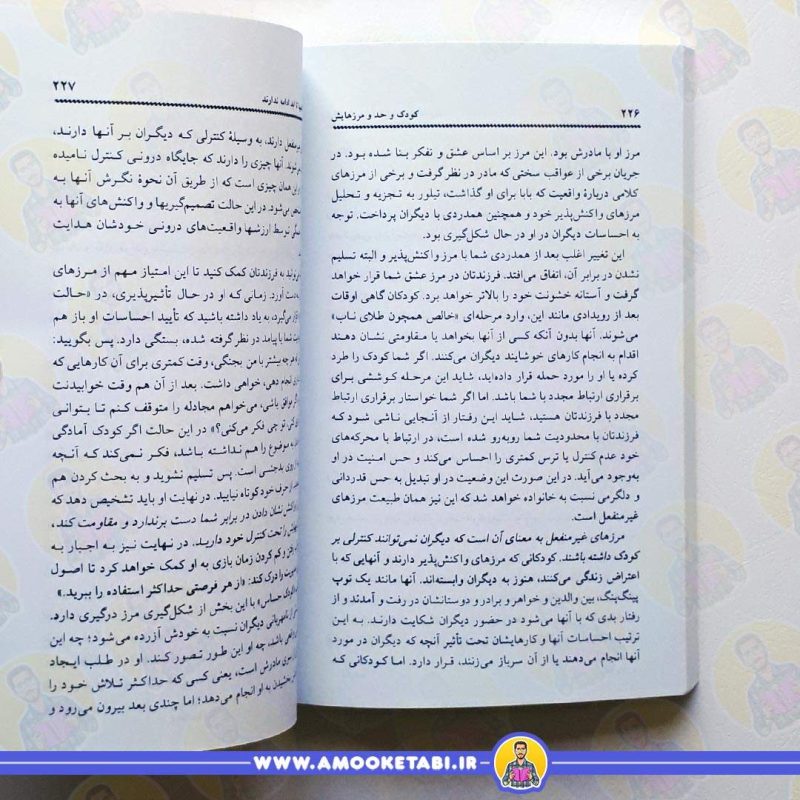 ۲۲۶
کودک و حد و مرزهایش
مرز او با مادرش بود. این مرز بر اساس عشق و تفکر بنا شده بود. در
جریان برخی از عواقب سختی که مادر در نظر گرفت و برخی از مرزهای
کلامی دربارهٔ واقعیت که بابا برای او گذاشت، تیلور به تجزیه و تحلیل
مرزهای واکنش‌پذیر خود و همچنین همدردی با دیگران پرداخت. توجه
به احساسات دیگران در او در حال شکل‌گیری بود.
این تغییر اغلب بعد از همدردی شما با مرز واکنش‌پذیر و البته تسلیم
نشدن در برابر آن، اتفاق می‌افتد. فرزندتان در مرز عشق شما قرار خواهد
گرفت و آستانه خشونت خود را بالاتر خواهد برد. کودکان گاهی اوقات
بعد از رویدادی مانند این، وارد مرحله‌ای «خالص همچون طلای ناب»
می‌شوند. آنها بدون آنکه کسی از آنها بخواهد یا مقاومتی نشان دهند
اقدام به انجام کارهای خوشایند دیگران می‌کنند. اگر شما کودک را طرد
کرده یا او را مورد حمله قرار داده‌اید، شاید این مرحله کوششی برای
برقراری ارتباط مجدد با شما باشد. اما اگر شما خواستار برقراری ارتباط
مجدد با فرزندتان هستید، شاید این رفتار از آنجایی ناشی شود که
فرزندتان با محدودیت شما روبه‌رو شده است، در ارتباط با محرکه‌های
خود عدم کنترل یا ترس کمتری را احساس می‌کند و حس امنیت در او
به‌وجود می‌آید. در این صورت این وضعیت در او تبدیل به حس قدردانی
و دلگرمی نسبت به خانواده خواهد شد که این نیز همان طبیعت مرزهای
غیرمنفعل است.
مرزهای غیرمنفعل به معنای آن است که دیگران نمی‌توانند کنترلی بر
کودک داشته باشند. کودکانی که مرزهای واکنش‌پذیر دارند و آنهایی که با
اعتراض زندگی می‌کنند، هنوز به دیگران وابسته‌اند. آنها مانند یک توپ
پینگ‌پنگ، بین والدین و خواهر و برادر و دوستانشان در رفت و آمدند و از
رفتار بدی که با آنها می‌شود در حضور دیگران شکایت دارند. به این
ترتیب احساسات آنها و کارهایشان تحت تأثیر آنچه که دیگران در مورد
آنها انجام می‌دهند یا از آن سرباز می‌زنند، قرار دارد. اما کودکانی که
۲۲۷
ادامه ندارند
دارند، به وسیلهٔ کنترلی که دیگران بر آنها دارند،
آنها چیزی را دارند که جایگاه درونی کنترل نامیده
همان چیزی است که از طریق آن نحوهٔ نگرش آنها به
می‌شود. در این حالت تصمیم‌گیریها و واکنش‌های آنها به
توسط ارزشها واقعیت‌های درونی خودشان هدایت
به فرزندتان کمک کنید تا این امتیاز مهم از مرزهای
دست آورد. زمانی که او در حال تأثیرپذیری، در «حالت
به یاد داشته باشید که تأیید احساسات او باز هم
شما با پیامد در نظر گرفته شده، بستگی دارد. پس بگویید:
هر چه بیشتر با من بجنگی، وقت کمتری برای آن کارهایی که
انجام دهی، خواهی داشت. بعد از آن هم وقت خوابیدنت
موافق باشی، می‌خواهم مجادله را متوقف کنم تا بتوانی
تو چی فکر می‌کنی؟» در این حالت اگر کودک آمادگی
موضوع را هم نداشته باشد، فکر نمی‌کند که آنچه
روی بدجنسی است. پس تسلیم نشوید و به بحث کردن هم
از حرف خود کوتاه نیایید. در نهایت او باید تشخیص دهد که
نشان دادن در برابر شما دست بردارد و مقاومت کند،
را تحت کنترل خود دارید. در نهایت نیز به اجبار به
و کم کردن زمان بازی به او کمک خواهد کرد تا اصول
را درک کند: «از هر فرصتی حداکثر استفاده را ببرید.»
حساس» با این بخش از شکل‌گیری مرز درگیری دارد.
نامهربانی دیگران نسبت به خودش آزرده می‌شود؛ چه این
باشد، چه او این طور تصور کند. او در طلب ایجاد
مادرش است، یعنی کسی که حداکثر تلاش خود را
بخشیدن به او انجام می‌دهد؛ اما چندی بعد بیرون می‌رود و
WWW.AMOOKETABI.IR